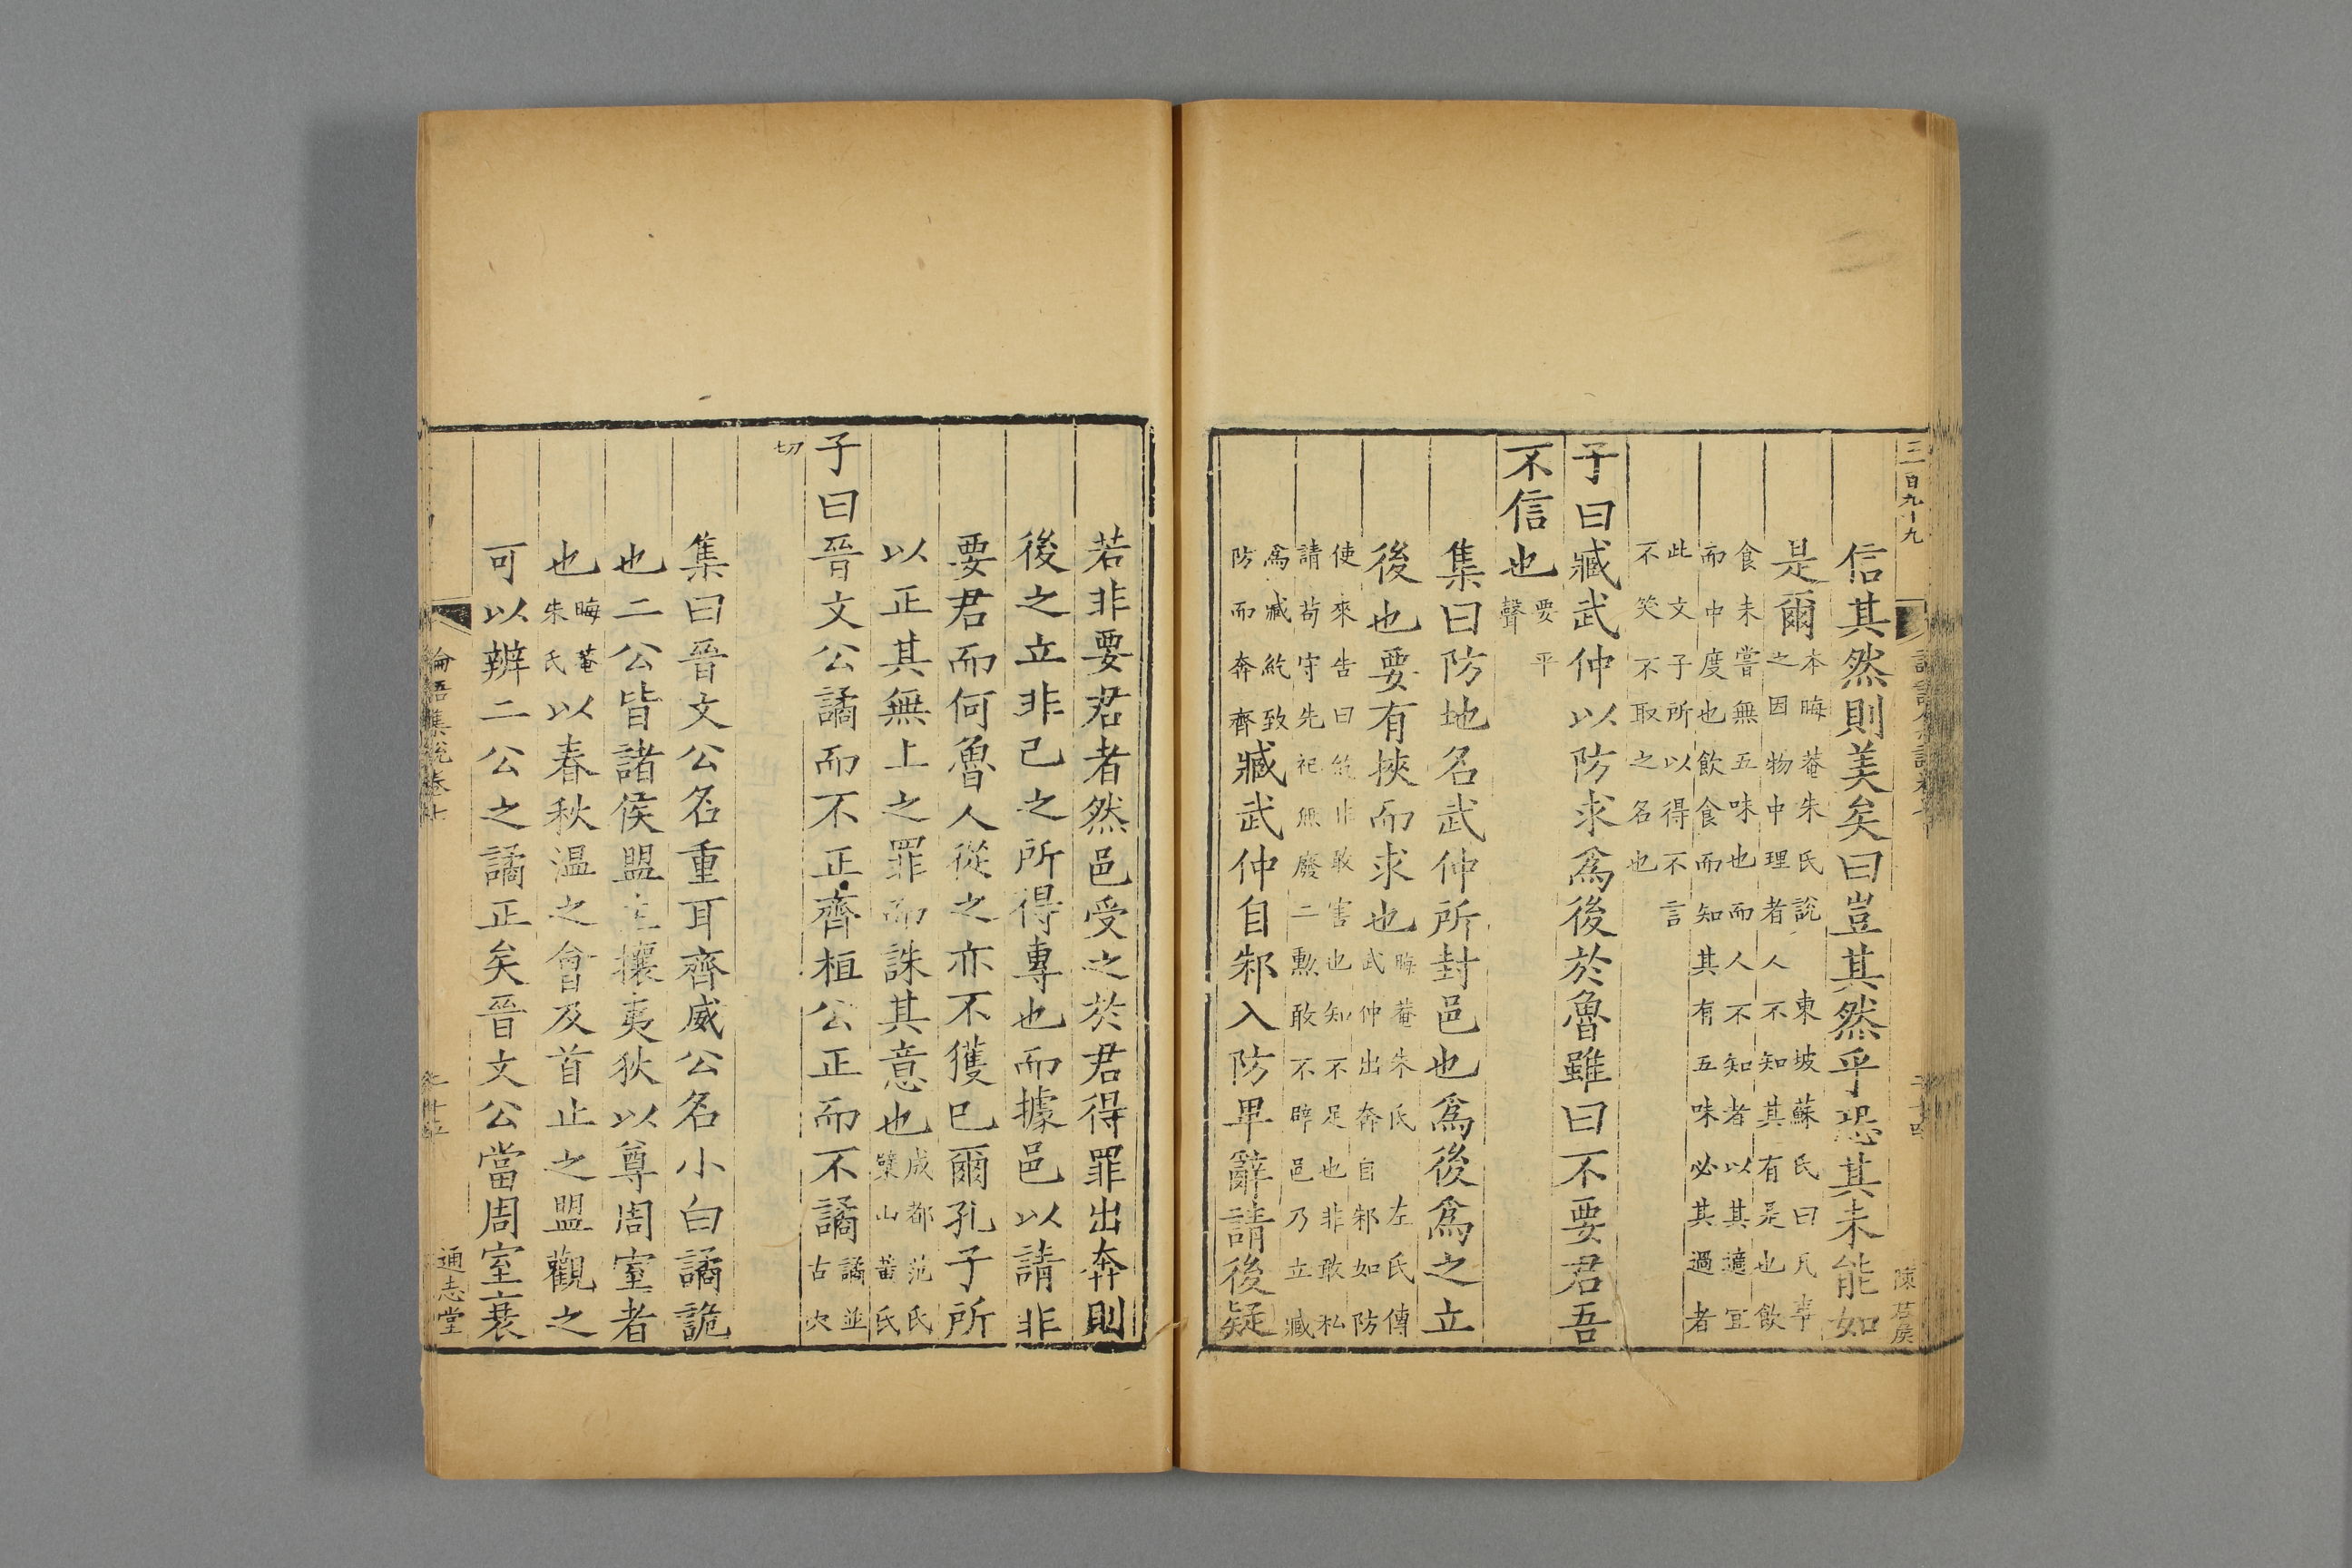 三百九十九
信其然則美矣曰豈其然乎恐其未能如
是爾本晦菴朱氏說 東坡蘇氏曰凡事
之因物中理者人不知其有是也飲
食未嘗無五味也而人不知者以其適宜
而中度也飲食而知其有五味必其過者
此文子所以得不言
不笑不取之名也
子曰臧武仲以防求爲後於魯雖曰不要君吾
不信也要平
聲
集曰防地名武仲所封邑也爲後爲之立
後也要有挾而求也晦菴朱氏 左氏傳
武仲出奔自邾如防
使來告曰紇非敢害也知不足也非敢私
請苟守先祀無廢二勳敢不辟邑乃立臧
爲臧紇致
防而奔齊臧武仲自邾入防卑辭請後疑
若非要君者然邑受之於君得罪出奔則
後之立非己之所得專也而據邑以請非
要君而何魯人從之亦不獲已爾孔子所
以正其無上之罪而誅其意也成都范氏
檗山黃氏
子曰晉文公譎而不正齊桓公正而不譎譎並
古穴
切
集曰晉文公名重耳齊威公名小白譎詭
也二公皆諸侯盟主攘夷狄以尊周室者
也晦菴
朱氏以春秋溫之會及首止之盟觀之
可以辨二公之譎正矣晉文公當周室衰
論語集說卷七
通志堂